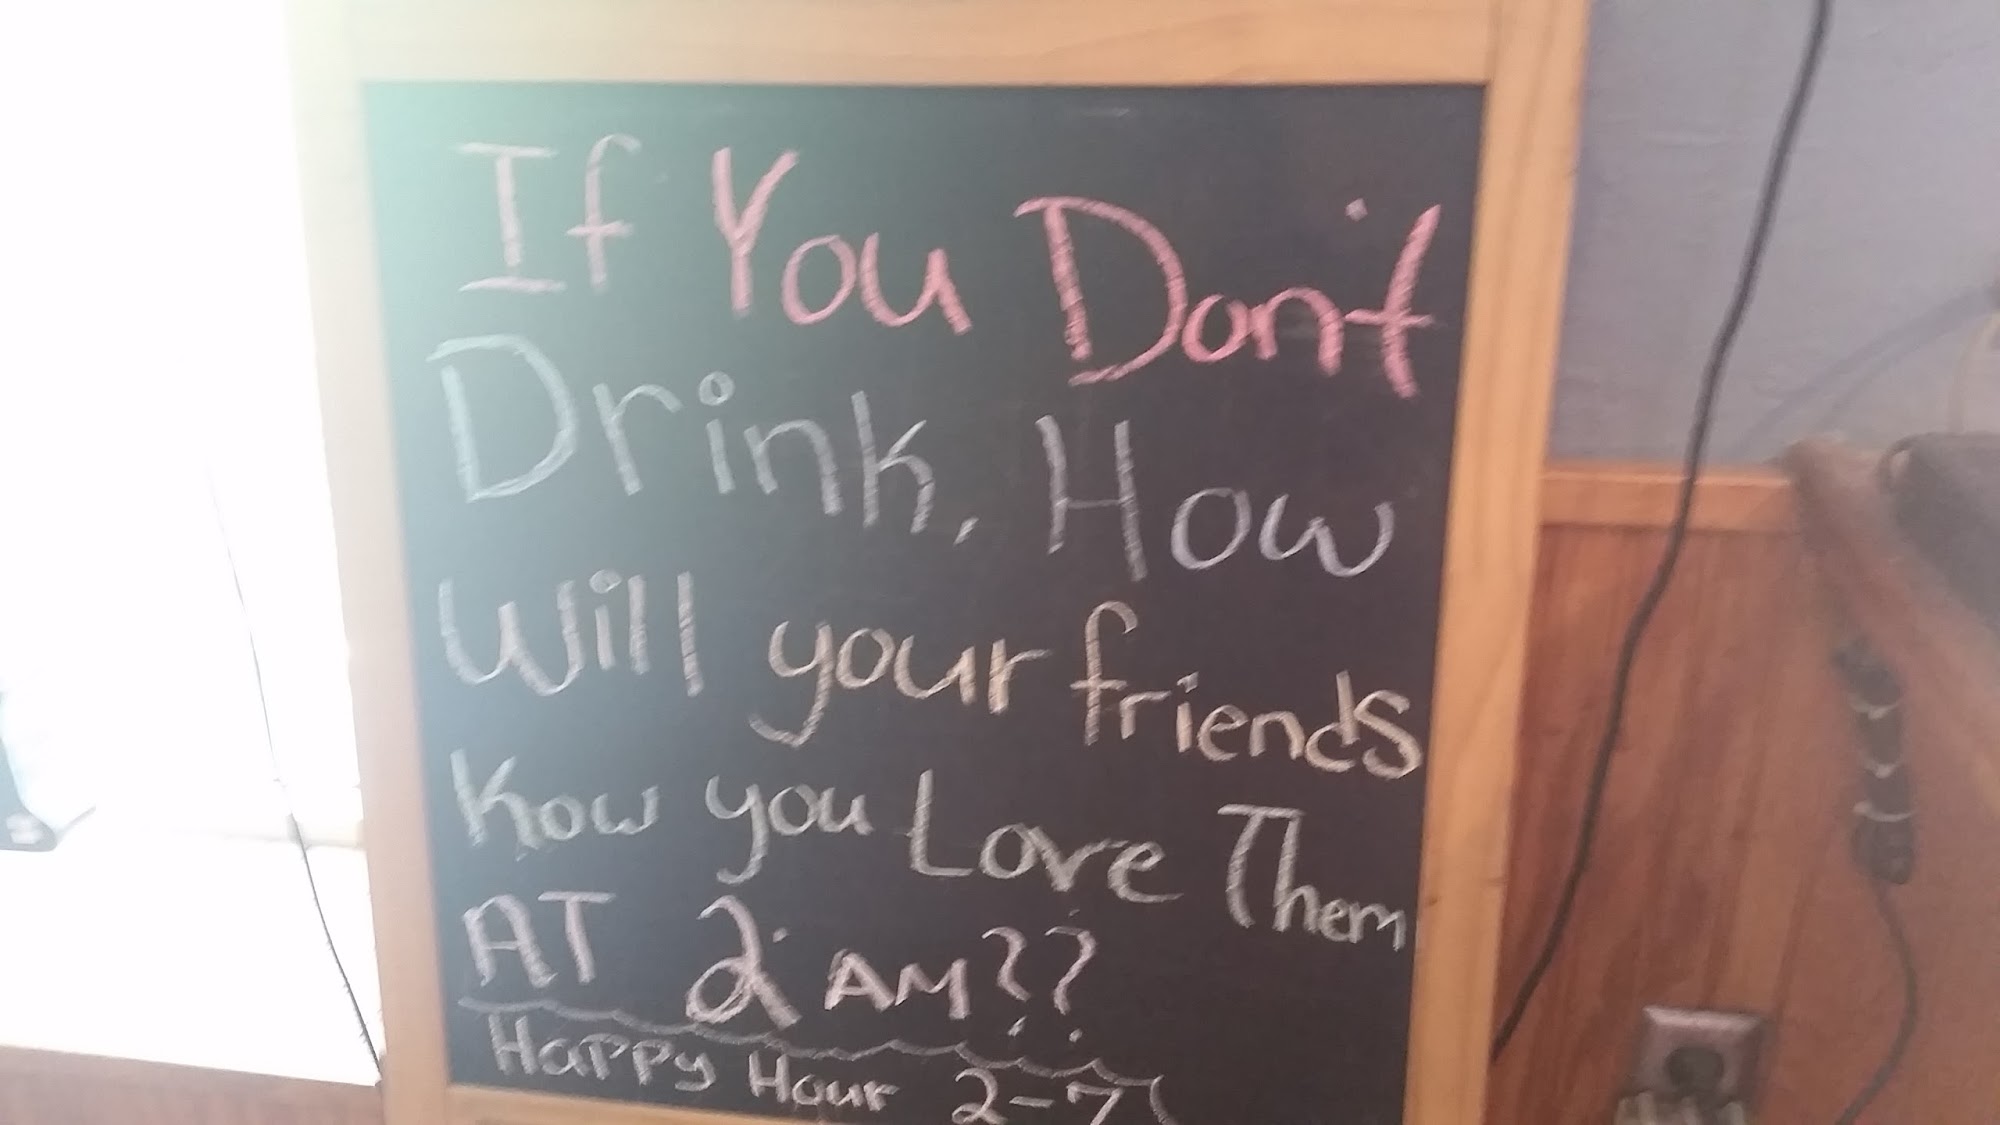 If You Don't
Drink, How
Will your friends
Kow you Love Them
AT 2 AM??
Happy Hour 2-7